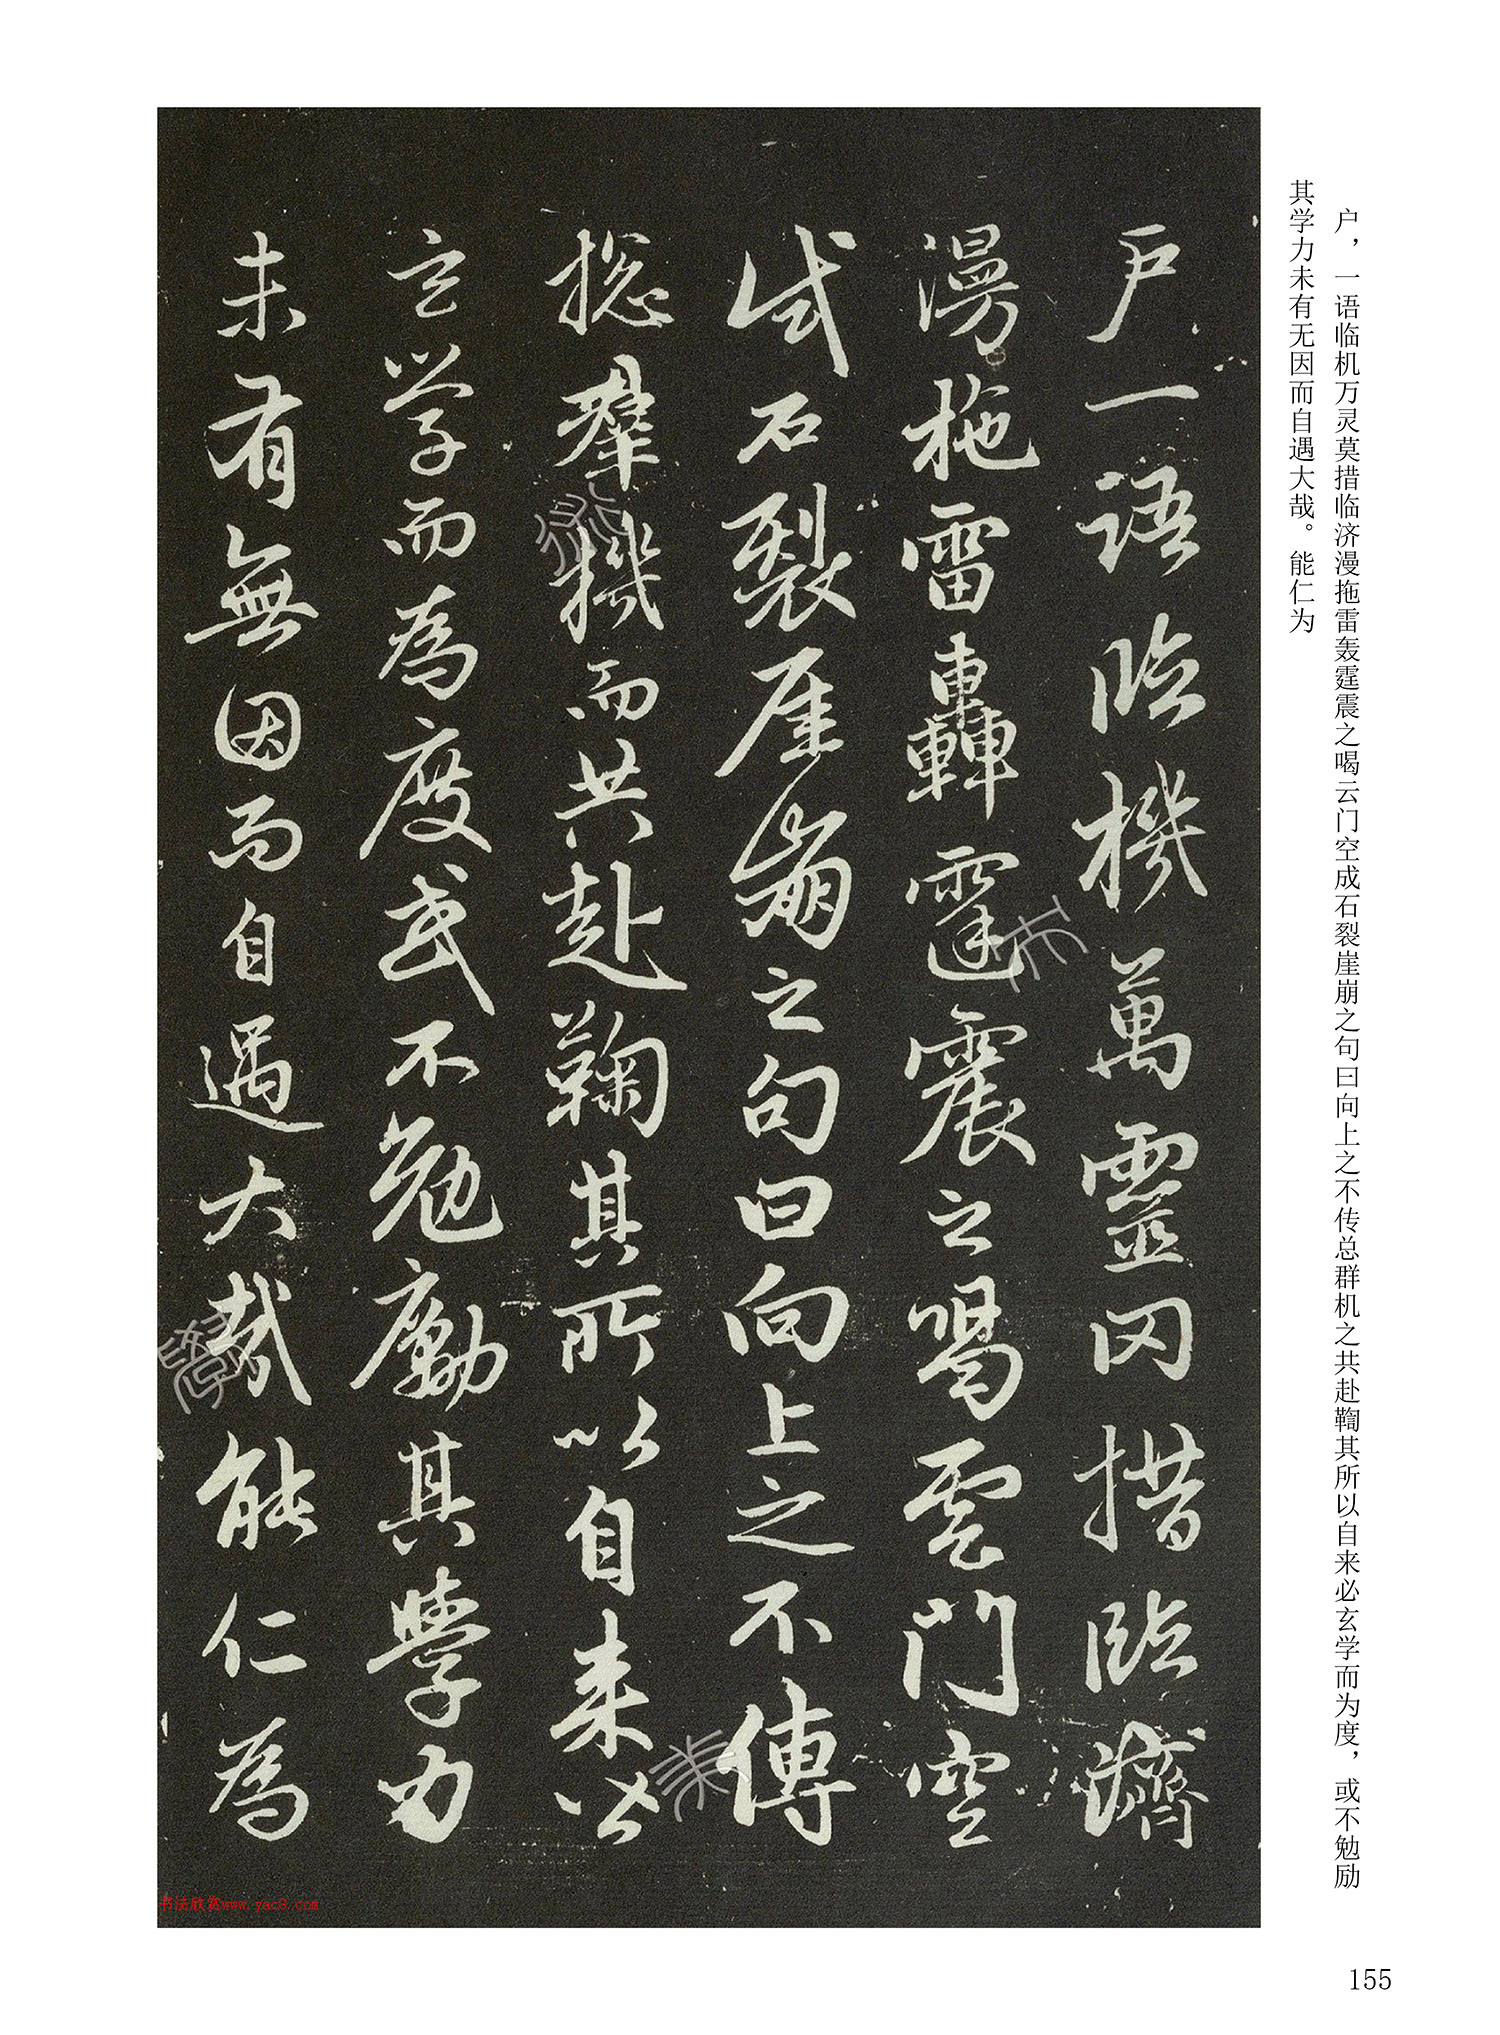 户，一语临机万灵莫措临济漫拖雷轰霆震之喝云门空成石裂崖崩之句曰向上之不传总群机之共赴鞫其所以自来必玄学而为度，或不勉励
其学力未有无因而自遇大哉。能仁为
户一語臨機萬靈罔措臨濟
漫拖雷轟霆震之喝雲門空
試石裂崖崩之句曰向上之不傳
揔羣機而共赴鞠其所以自来必
玄学而為度或不勉勵其學力
未有無因而自遇大哉能仁為
书法欣赏www.yac8.com
155